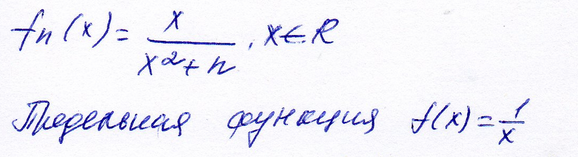 fn(x) = x / (x² + n), x ∈ R
Предельная функция f(x) = 1/x